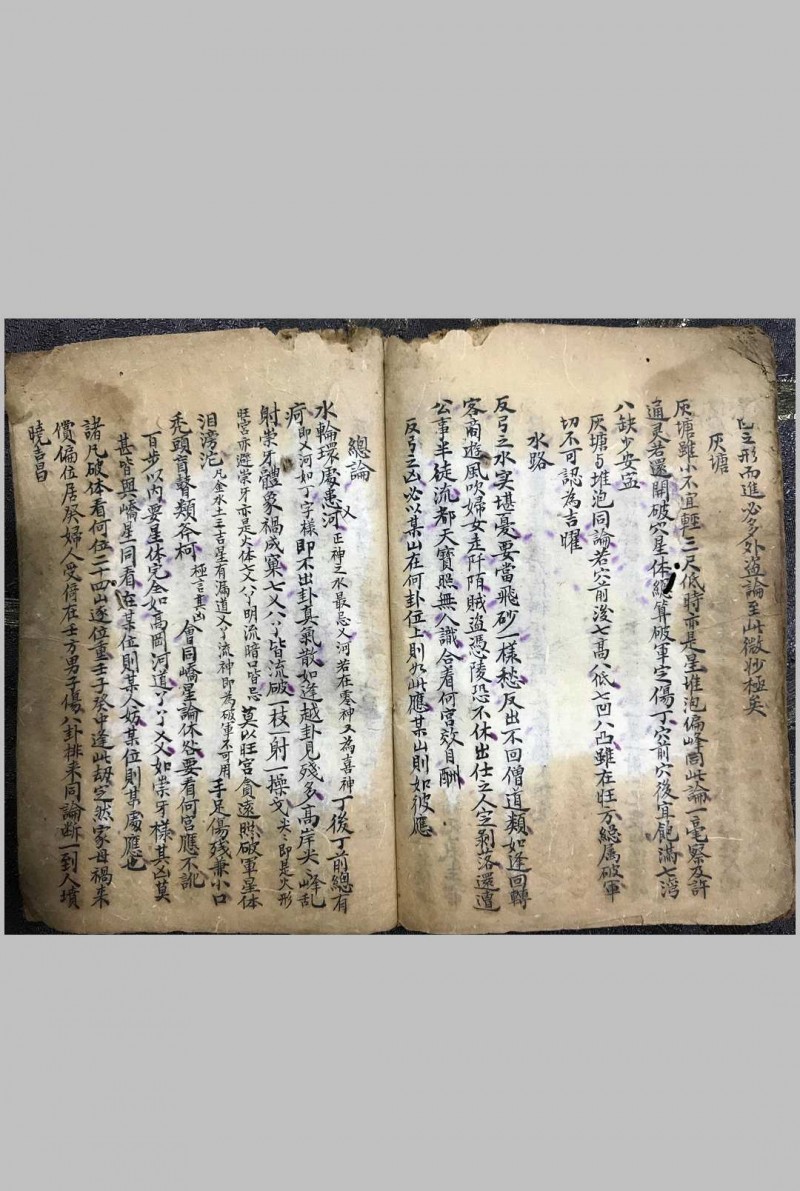 之形而進必多外盗論至此微妙極矣
灰塘
灰塘雖小不宜輕三尺低時亦是星堆泡偏峰同此論一毫察及許
通灵若還開破穴星体總算破軍定傷丁穴前穴後宜飽满七湾
八缺少安寍
灰塘与堆泡同論若穴前後七高八低七凹八凸雖在旺方總属破軍
切不可認為吉曜
水路
反弓之水实堪憂要當飛砂一樣愁反出不回僧道類如逢回轉
客商遊風吹婦女走阡陌賊盗憑陵恐不休出仕之人定剥落還遭
公事半徒流都天寶照無人識合看何宫效自酬
反弓之凶必以某山在何卦位上則如此應某山則如彼應
總論
水輪環處患河义正神之水最忌义河若在零神义為喜神丁後丁前總有
疴即义河如丁字樣即不出卦真氣散如逢越卦見殘多高岸尖峰乱
射崇牙體象禍成窠七义八丫皆流破一枝一射一操戈尖尖即是火形
旺宫亦避崇牙亦是火体七义八丫明流暗口皆忌莫以旺宫貪遠照破軍星体
泪滂沱凡金水土三吉星有漏道义丫流神即為破軍不可用手足傷残兼小口
秃頭盲瞽類斧柯極言其凶會同嶠星論休咎要看何宫應不訛
百步以内要星体完全如高岡河道丫丫义义如崇牙樣其凶莫
甚皆與嶠星同看在某位則某人妨某位則某處應也
諸凡破体看何位二十四山逐位重壬子癸中逢此刼定然家母禍来
償偏位居癸婦人受倘在壬方男子傷八卦排来同論断一到人墳
曉吉昌